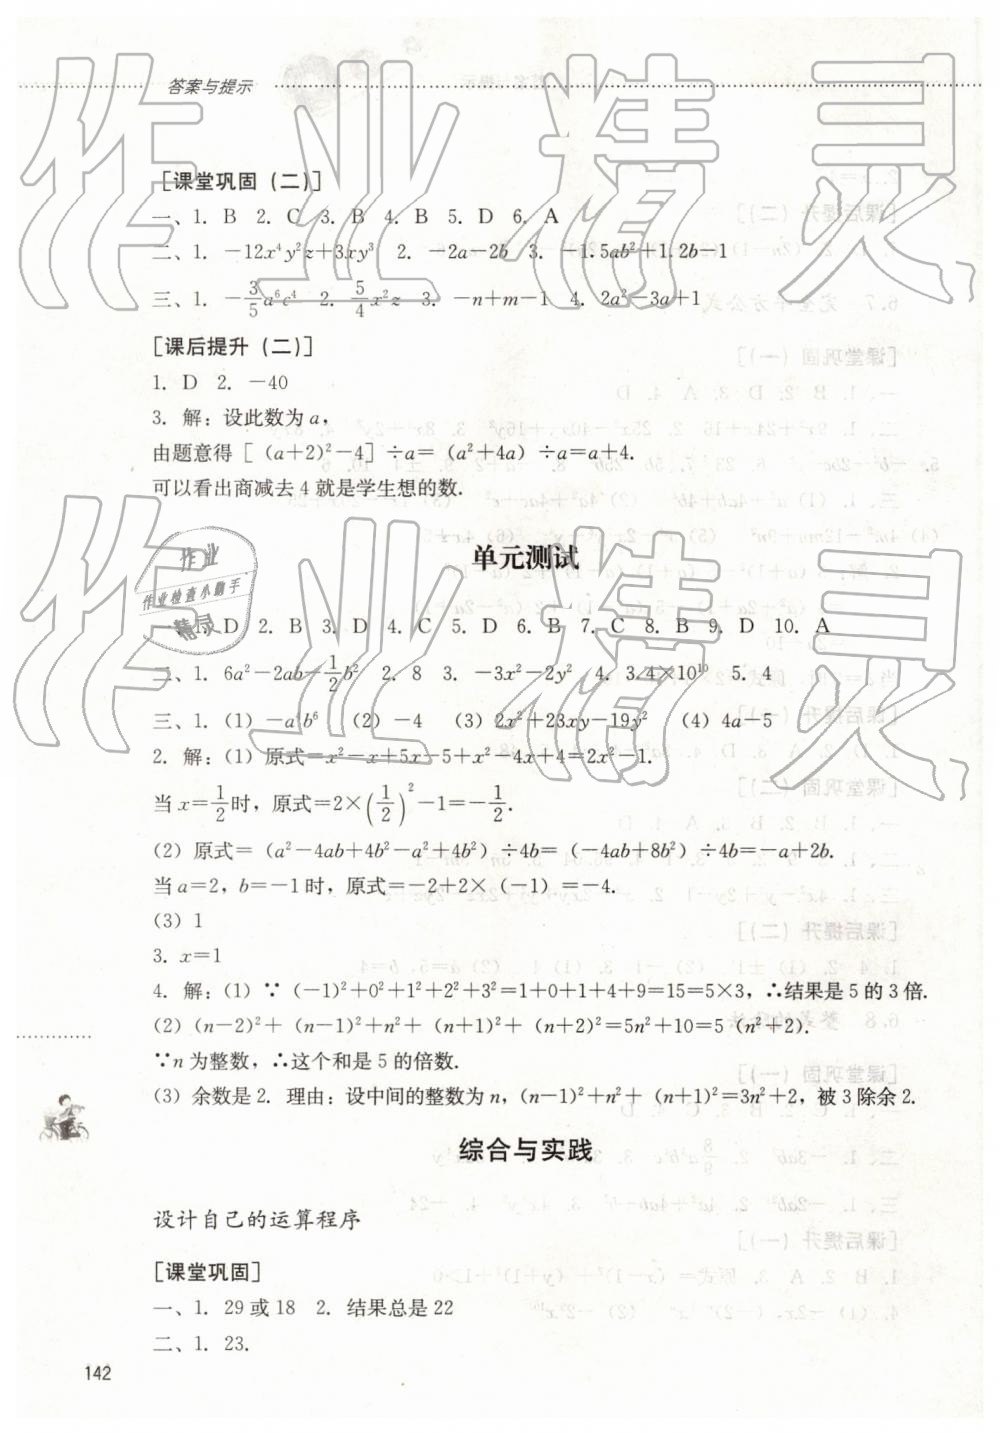 答案与提示
[课堂巩固(二)]
一、1. B 2. C 3. B 4. B 5. D 6. A
二、1. −12x⁴y²z+3xy³ 2. −2a−2b 3. −1.5ab²+1.2b−1
三、1. −3/5a⁶c⁴ 2. 5/4x²z 3. −n+m−1 4. 2a²−3a+1
[课后提升(二)]
1. D 2. −40
3. 解:设此数为a,
由题意得[(a+2)²−4]÷a=(a²+4a)÷a=a+4.
可以看出商减去4就是学生想的数.
单元测试
一、1. D 2. B 3. D 4. C 5. D 6. B 7. C 8. B 9. D 10. A
二、1. 6a²−2ab−1/2b² 2. 8 3. −3x²−2y² 4. 3.4×10¹⁰ 5. 4
三、1. (1) (2)−4 (3) 2x²+23xy−19y² (4) 4a−5
2. 解:(1) 原式=x²−x+5x−5+x²−4x+4=2x²−1.
当x=1/2时,原式=2×(1/2)²−1=−1/2.
(2) 原式=(a²−4ab+4b²−a²+4b²)÷4b=(−4ab+8b²)÷4b=−a+2b.
当a=2,b=−1时,原式=−2+2×(−1)=−4.
(3) 1
3. x=1
4. 解:(1) ∵(−1)²+0²+1²+2²+3²=1+0+1+4+9=15=5×3,∴结果是5的3倍.
(2) (n−2)²+(n−1)²+n²+(n+1)²+(n+2)²=5n²+10=5(n²+2).
∵n为整数,∴这个和是5的倍数.
(3) 余数是2. 理由:设中间的整数为n,(n−1)²+n²+(n+1)²=3n²+2,被3除余2.
综合与实践
设计自己的运算程序
[课堂巩固]
一、1. 29或18 2. 结果总是22
二、1. 23.
142
作业精灵
作业精灵
作业
作业检查小助手
精灵